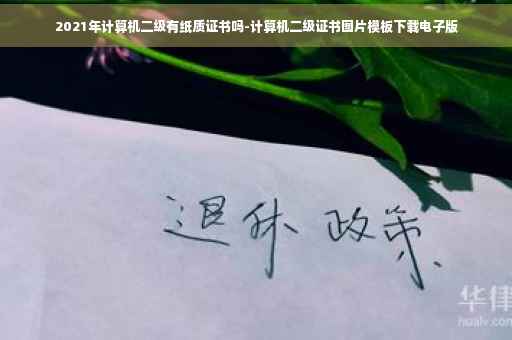 2021年计算机二级有纸质证书吗-计算机二级证书图片模板下载电子版
退休 政策
华律
hualv.com